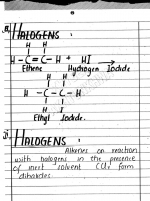 i. HALOGENS :
H H
H - C = C - H + HI →
Ethene Hydrogen Iodide
H H
H - C - C - H
H I
Ethyl Iodide.
ii. HALOGENS :
Alkenes on reaction
with halogens in the presence
of inert solvent CCl4 form
dihalides.